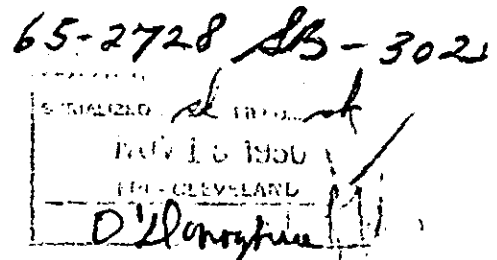 65-2728 SB-302
SERIALIZED FILED
NOV 16 1950
FBI - CLEVELAND
O'Donoghue